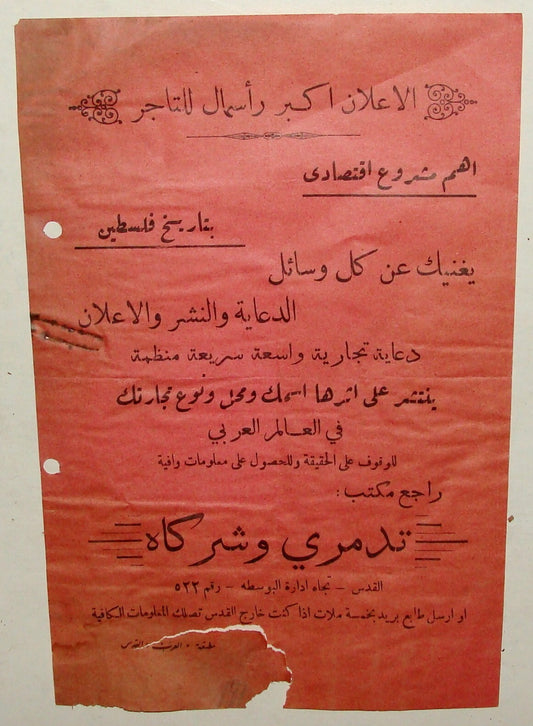 الاعلان اكبر رأسمال للتاجر
اهم مشروع اقتصادى
بتاريخ فلسطين
يغنيك عن كل وسائل
الدعاية والنشر والاعلان
دعاية تجارية واسعة سريعة منظمة
ينتشر على اثرها اسمك ومحل ونوع تجارتك
في العالم العربي
للوقوف على الحقيقة وللحصول على معلومات وافية
راجع مكتب :
تدمري وشركاه
القدس – تجاه ادارة البوسطه – رقم ٥٢٢
او ارسل طابع بريد بخمسة ملات اذا كنت خارج القدس تصلك المعلومات الكافية
مطبعة · العرب · القدس